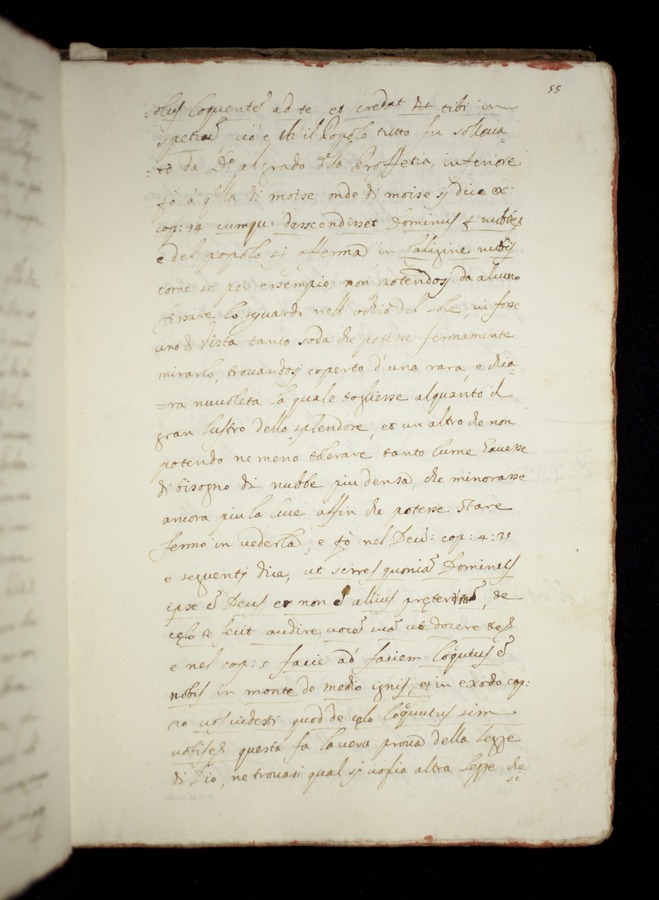 55
=lus loquente ad te et credat et tibi in
spetiem ciò è tti il Popolo tutto fu solleua
=to da D.o al grado d.lla Proffetia, inferiore
fò a q.lla di moise onde di moise si dice ex
cap: 24 cumqu dasscendisset Dominus nubbes
e del popolo si afferma in caligine nubis
come se per essempio non potendosi da alcuno
fissare lo sguardo nell' ochio del sole, ui fosse
uno di Vista tanto soda che potesse fermamente
mirarlo, trouandosi coperto d'una rara, e chia
=ra nuuoleta la quale togliesse alquanto il
gran lustro dello splendore, et un altro che non
potendo ne meno tolerare tanto lume hauesse
di bisogno di nubbe piu densa, che minorasse
ancora piu la luce affin che potesse stare
fermo in uederla, e fò nel Deu: cap: 4: 35
e seguenti dice, ut sires quoniã Dominus
ipse ẽ Deus et non ẽ alius preter, de
cęlo te fecit audire uocẽ suã ut docere te
e nel cap: 5 facie ad faciem loqutus ẽ
nobis in monte de medio ignis, et in exodo cap:
20 uos uidesti quod de cęlo loquutus sim
uobis questa fa la uera proua della legge
di Dio, ne trouasi qual si voglia altra legge che